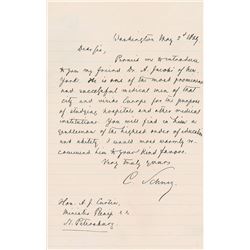 Washington May 2d 1869
Dear Sir,
Permit me to introduce
to you my friend Dr. A. Jacobi of New
York. He is one of the most prominent
and successful medical men of that
city and visits Europe for the purpose
of studying hospitals and other medical
institutions. You will find in him a
gentleman of the highest order of education
and ability. I would most warmly re-
commend him to your kind favors.
Very truly yours
C. Schurz
Hon. A. G. Curtin
Minister Plenip
St. Petersburg